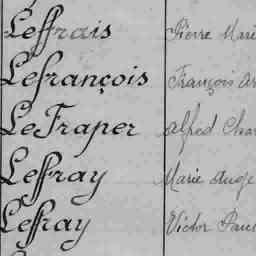 Leffrais Pierre Mari
Lefrançois François Ar
Le Fraper Alfred Char
Leffray Marie Ange
Leffray Victor Paul